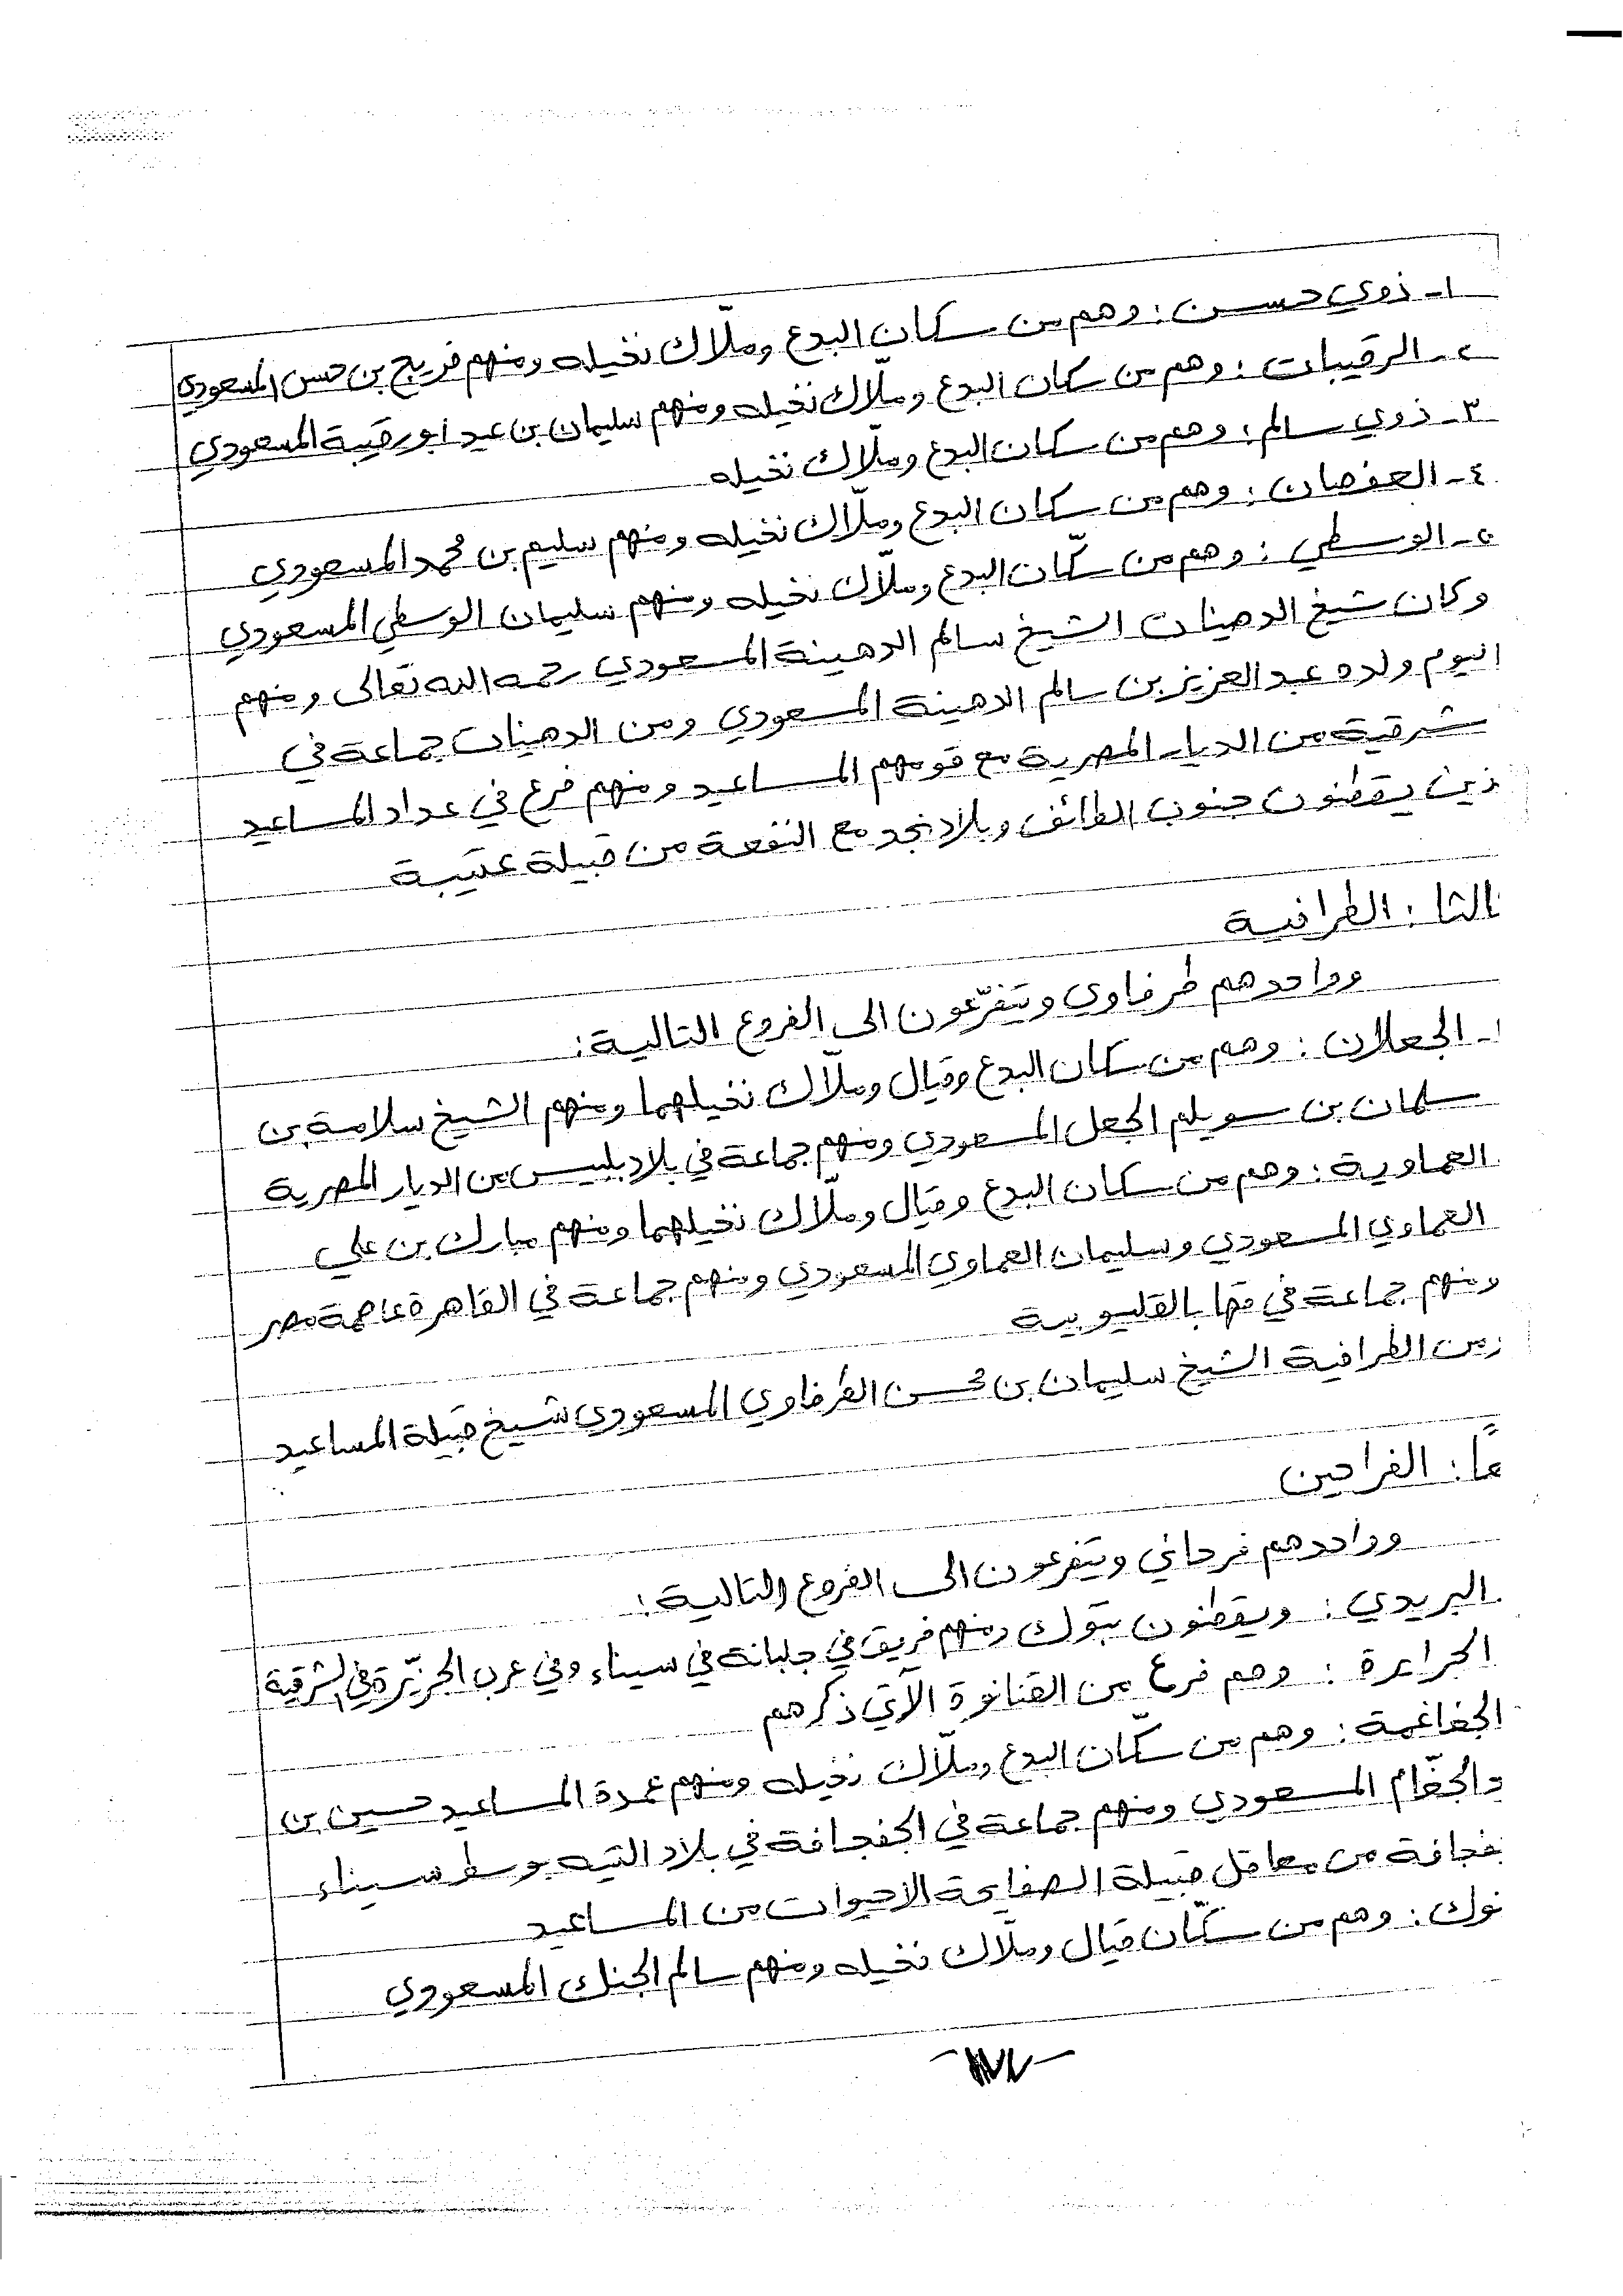 ١- ذوي حسن : وهم من سكان البدع وملّاك نخيله ومنهم فريج بن حسن المسعودي
٢- الرقيبات : وهم من سكان البدع وملّاك نخيله ومنهم سليمان بن عيد ابو رقيبة المسعودي
٣- ذوي سالم : وهم من سكان البدع وملّاك نخيله
٤- العفصان : وهم من سكّان البدع وملّاك نخيله ومنهم سليم بن محمد المسعودي
٥- الوسطي : وهم من سكّان البدع وملّاك نخيله ومنهم سليمان الوسطي المسعودي
وكان شيخ الدهينات الشيخ سالم الدهينة المسعودي رحمه الله تعالى ومنهم
اليوم ولده عبد العزيز بن سالم الدهينة المسعودي ومن الدهينات جماعة في
شرقية من الديار المصرية مع قومهم المساعيد ومنهم فرع في عداد المساعيد
ذين يقطنون جنوب الطائف وبلاد نجد مع النفعة من قبيلة عتيبة
الثا : الطرافية
وواحدهم طرفاوي ويتفرّعون الى الفروع التالية :
١- الجعلان : وهم من سكان البدع وقيال وملّاك نخيلهما ومنهم الشيخ سلامة بن
سلمان بن سويلم الجعل المسعودي ومنهم جماعة في بلاد بلبيس من الديار المصرية
العماوية : وهم من سكان البدع وقيال وملّاك نخيلهما ومنهم مبارك بن علي
العماوي المسعودي وسليمان العماوي المسعودي ومنهم جماعة في القاهرة عاصمة مصر
ومنهم جماعة في قها بالقليوبية
من الطرافية الشيخ سليمان بن محسن الطرفاوي المسعودي شيخ قبيلة المساعيد
عًا : الفراحين
وواحدهم فرحاني ويتفرعون الى الفروع التالية :
البريدي : ويقطنون بتبوك ومنهم فريق في جلبانة في سيناء وفي عرب الجزيّرة في الشرقية
الجرايرة : وهم فرع من القنانوة الآتي ذكرهم
الجغاغمة : وهم من سكّان البدع وملّاك نخيله ومنهم عمدة المساعيد حسين بن
د الجغّام المسعودي ومنهم جماعة في الجفجافة في بلاد التيه بوسط سيناء
فجافة من معاقل قبيلة الصفايحة الاحيوات من المساعيد
نوك : وهم من سكّان قيال وملّاك نخيله ومنهم سالم الجنك المسعودي